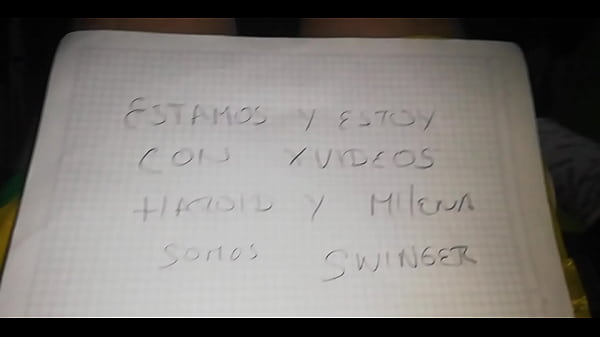 ESTAMOS Y ESTOY
CON XVIDEOS
HAROLD Y MILENA
SOMOS SWINGER